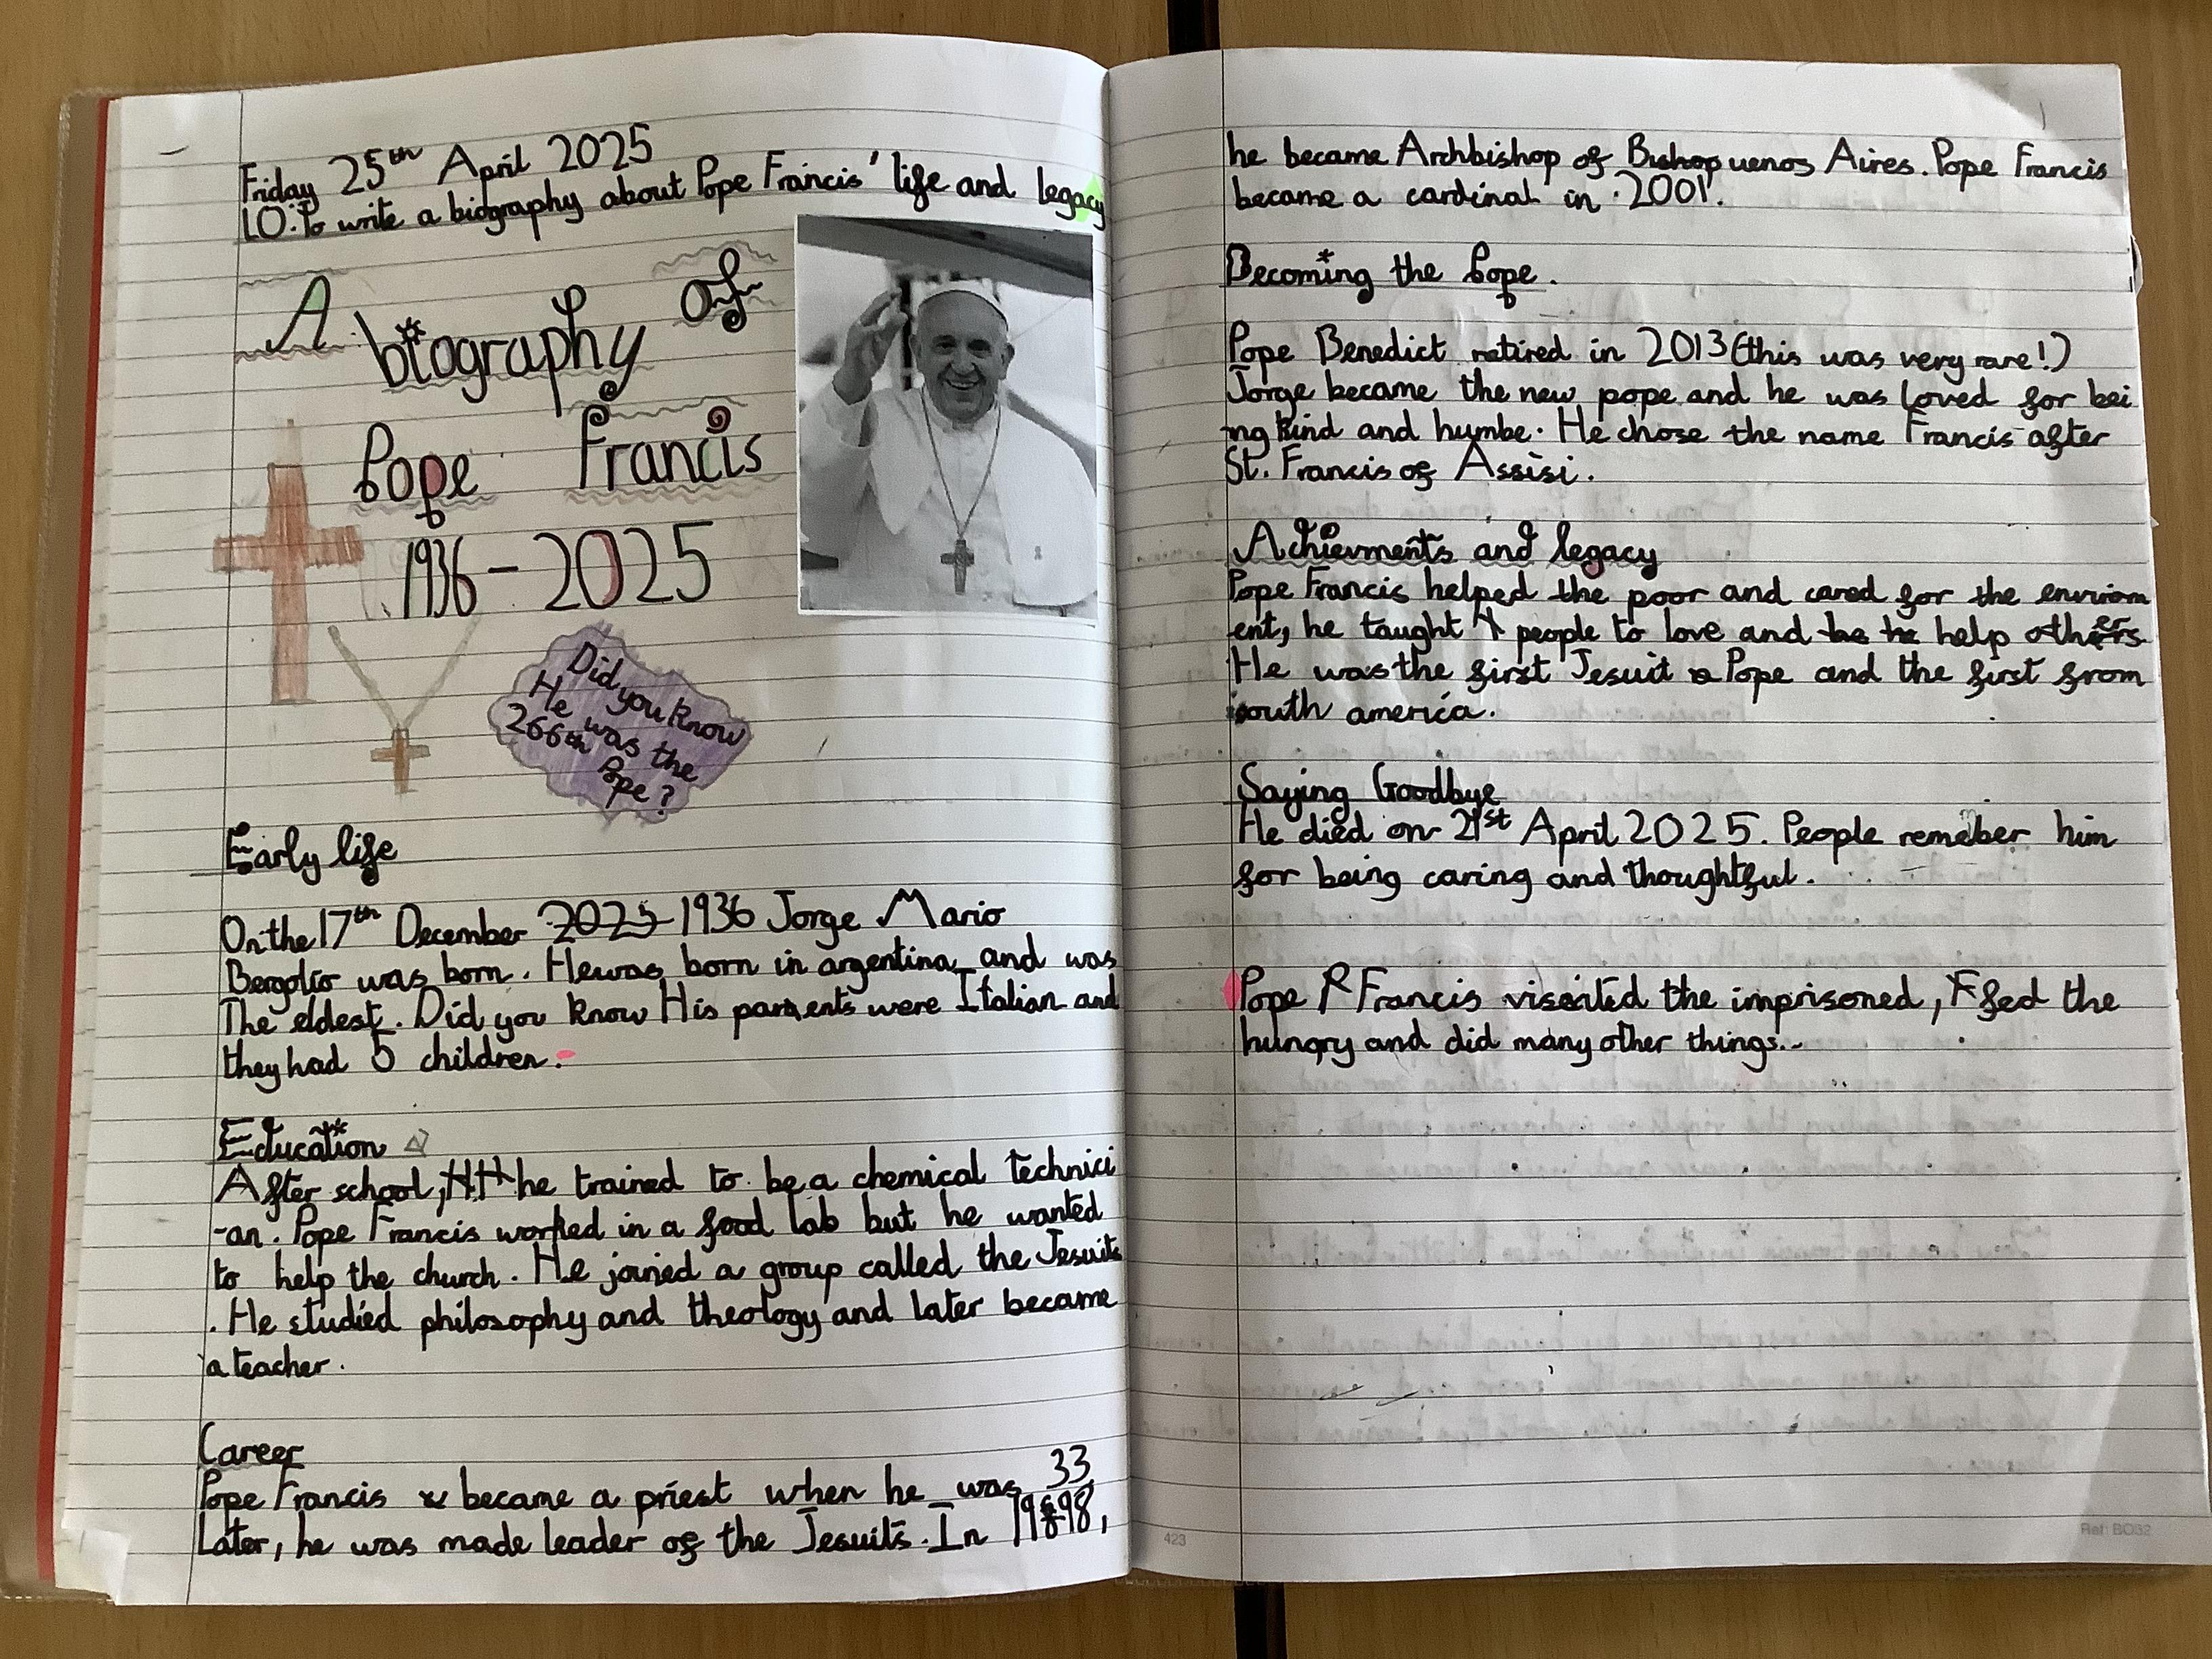 Friday 25th April 2025
LO: To write a biography about Pope Francis' life and legacy
A biography of
Pope Francis
1936-2025
Did you know
He was the
266th Pope?
Early life
On the 17th December 2025 1936 Jorge Mario
Bergolio was born. He was born in argentina and was
The eldest. Did you know His parents were Italian and
they had 5 children.
Education
After school, H H he trained to be a chemical technici
-an. Pope Francis worked in a food lab but he wanted
to help the church. He joined a group called the Jesuits
. He studied philosophy and theology and later became
a teacher.
Career
Pope Francis became a priest when he was 33.
Later, he was made leader of the Jesuits. In 1998,
he became Archbishop of Bishop uenos Aires. Pope Francis
became a cardinal in 2001.
Becoming the Pope.
Pope Benedict retired in 2013 (this was very rare!)
Jorge became the new pope and he was loved for bei
ng kind and humbe. He chose the name Francis after
St. Francis of Assisi.
Achievments and legacy
Pope Francis helped the poor and cared for the environm
ent, he taught people to love and be he help others.
He was the first Jesuit Pope and the first from
south america.
Saying Goodbye
He died on 21st April 2025. People remeber him
for being caring and thoughtful.
Pope Francis viseited the imprisoned, F fed the
hungry and did many other things.
423
Ref: BO32